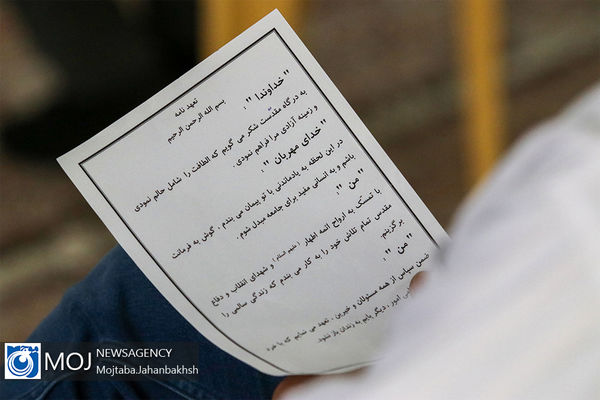 تعهد نامه
بسم الله الرحمن الرحیم
" خداوندا " .
به درگاه مقدّست شکر می گویم که الطافت را شامل حالم نمودی
و زمینه آزادی مرا فراهم نمودی .
" خدای مهربان " .
در این لحظه به یادماندنی با تو پیمان می بندم . گوش به فرمانت
باشم و به انسانی مفید برای جامعه مبدل شوم .
" من " .
با تمسّک به ارواح ائمه اطهار (علیهم السلام) و شهدای انقلاب و دفاع
مقدس تمام تلاش خود را به کار می بندم که زندگی سالمی را
برگزینم.
" من " .
ضمن سپاس از همه مسئولان و خیرین ، تعهد می نمایم که با خرد
امور ، دیگر پایم به زندان باز نشود.
MOJ NEWSAGENCY
Mojtaba.Jahanbakhsh